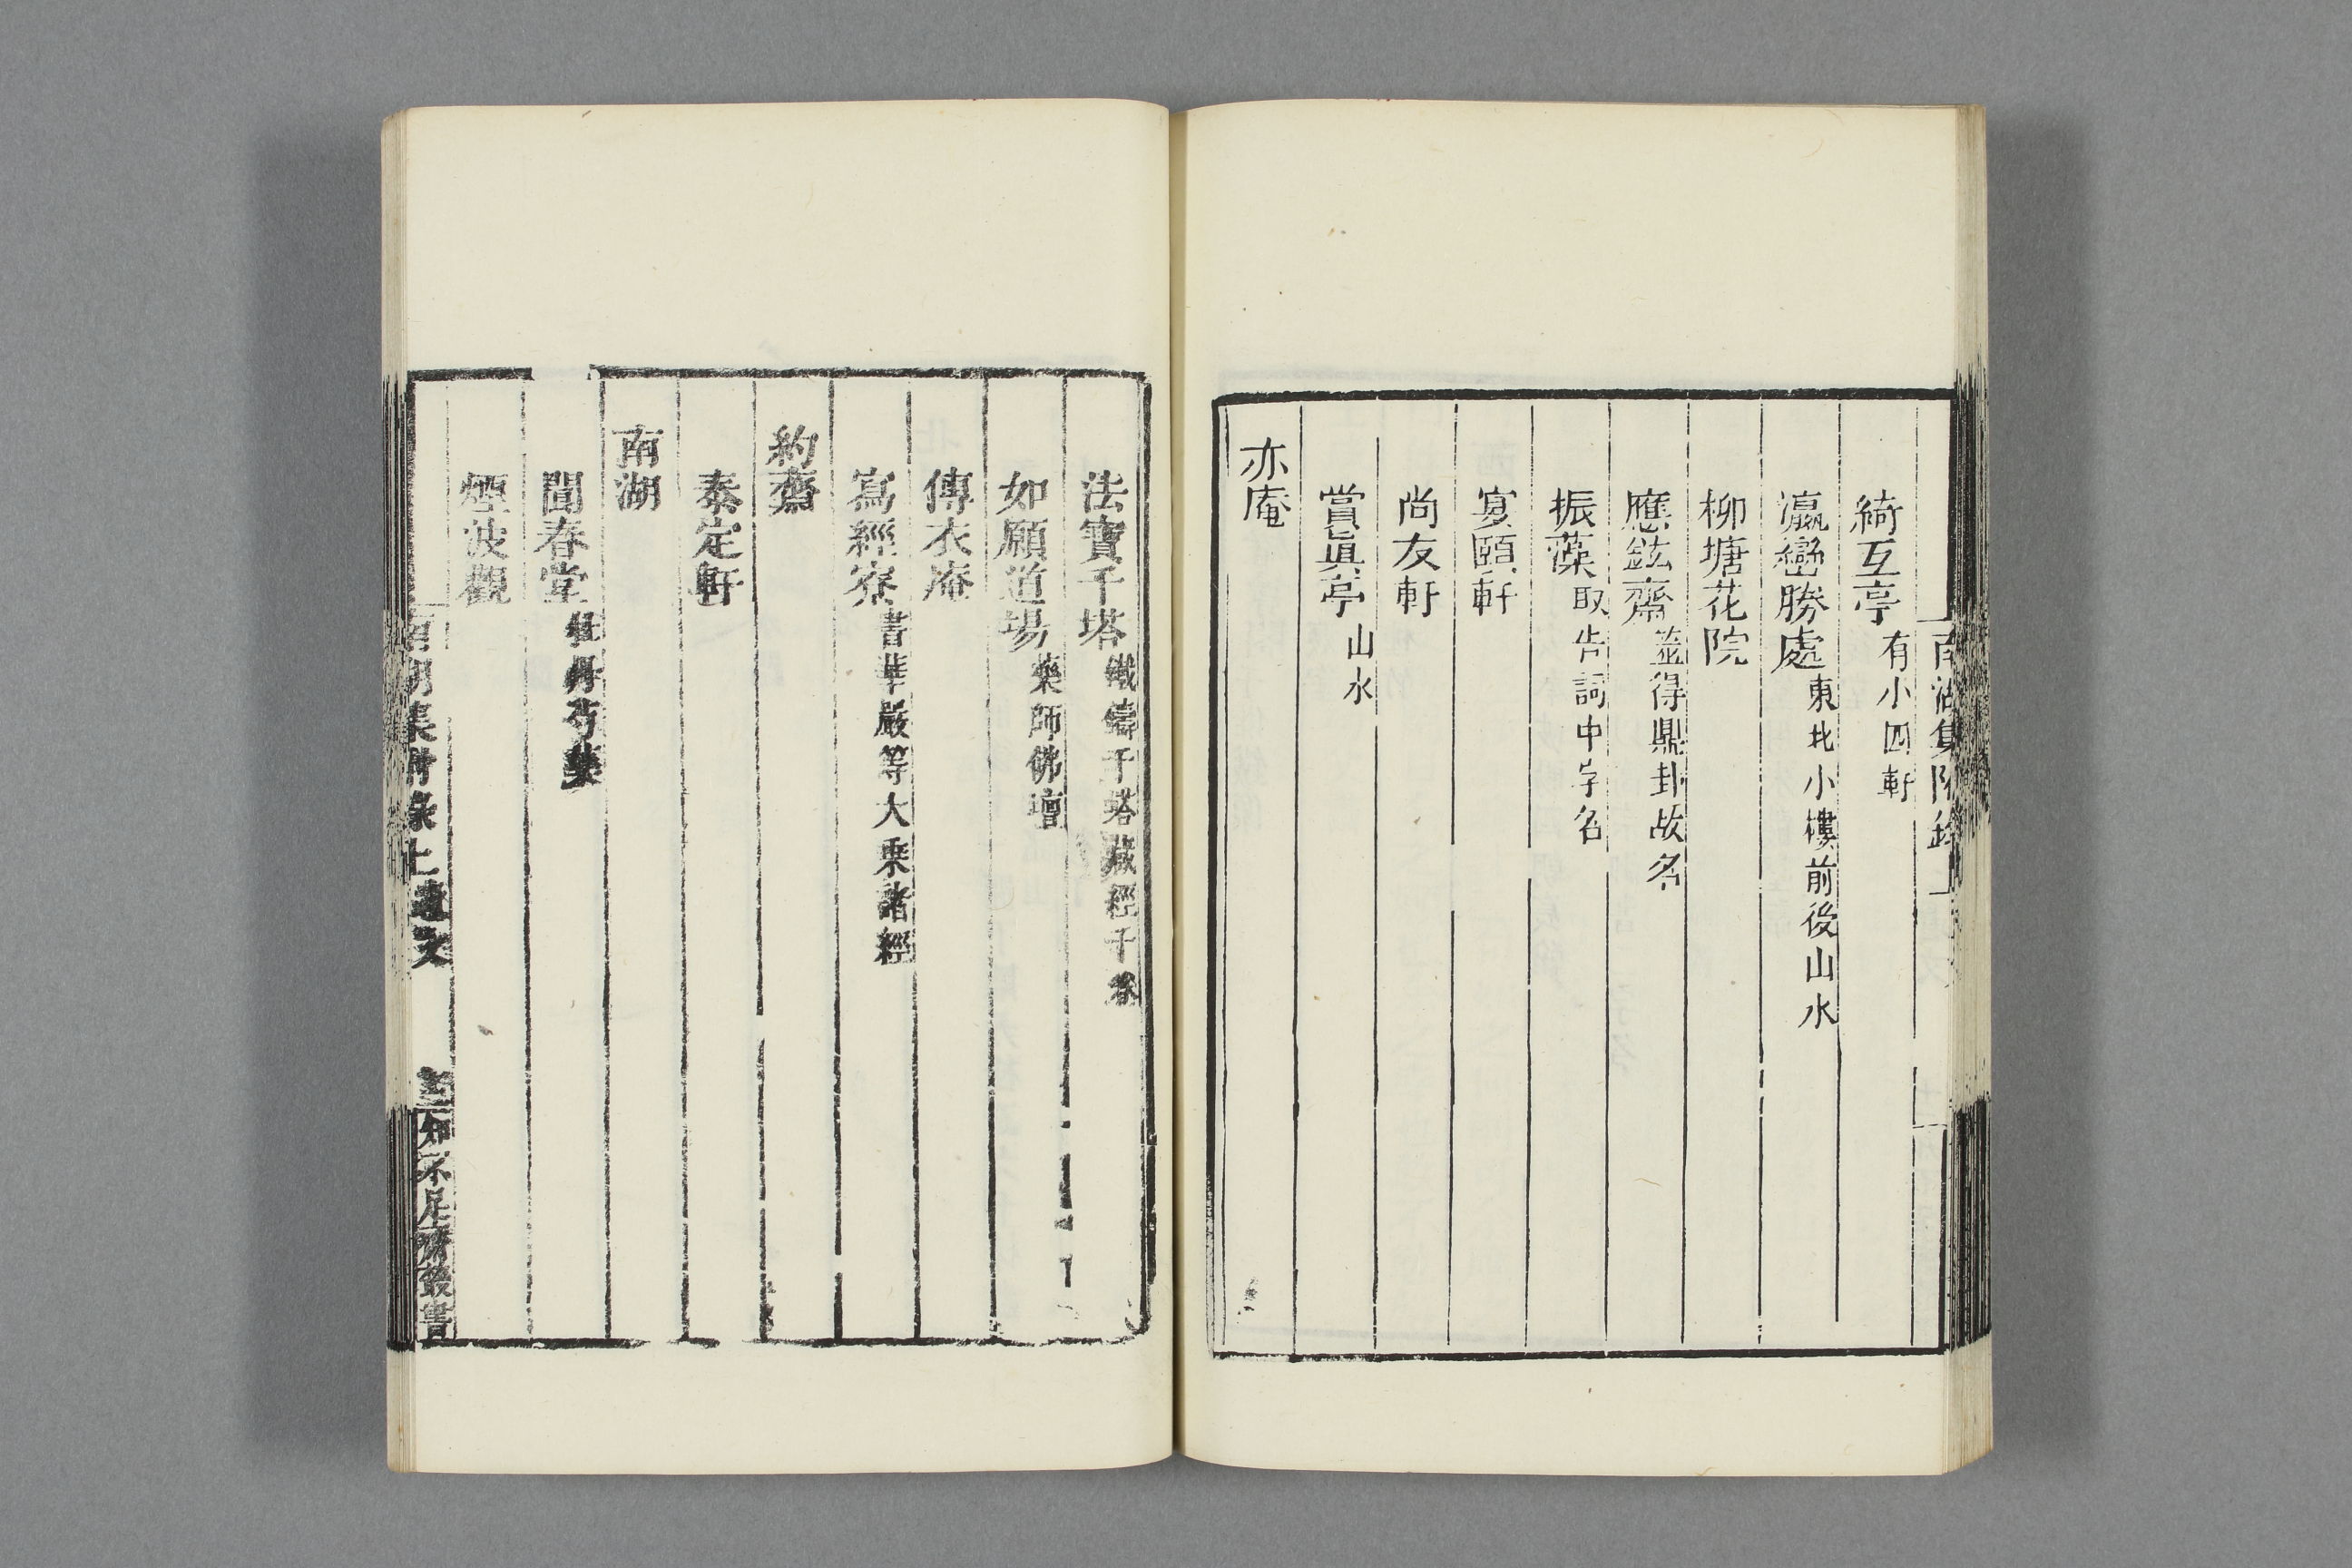 南湖集附錄
綺互亭有小四軒
瀛巒勝處東北小樓前後山水
柳塘花院
應鉉齋筮得鼎卦故名
振藻取告詞中字名
宴頤軒
尚友軒
賞眞亭山水
亦庵
法寶千塔鐵鑄千塔藏經千卷
如願道場藥師佛壇
傳衣庵
寫經寮書華嚴等大乘諸經
約齋
泰定軒
南湖
聞春堂牡丹芍藥
煙波觀
南湖集附錄上遺文
知不足齋叢書